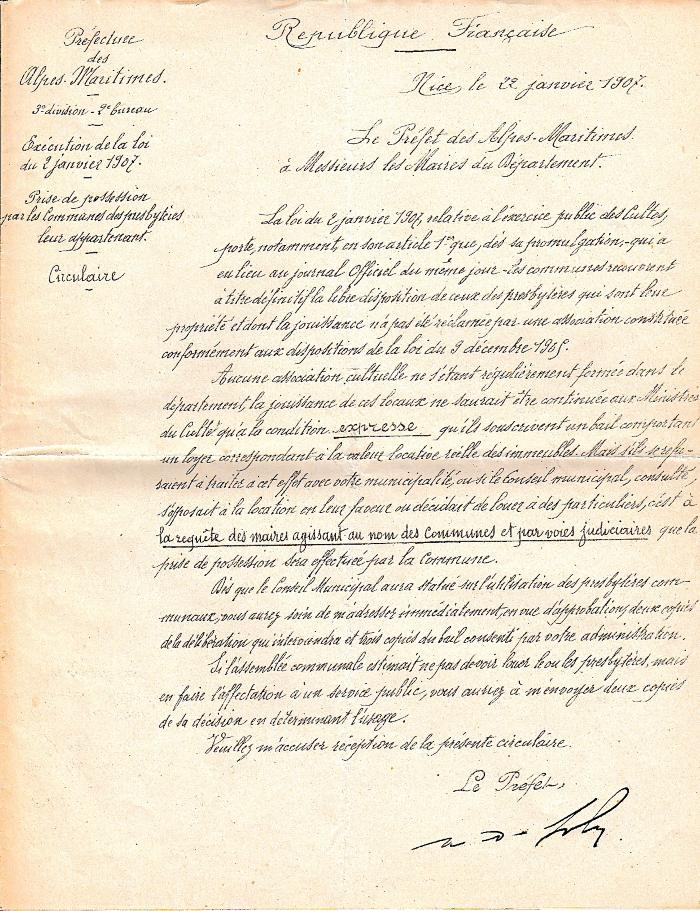 République Française
Préfecture
des
Alpes-Maritimes.
3e division - 2e bureau
Exécution de la loi
du 2 janvier 1907.
Prise de possession
par les Communes des presbytères
leur appartenant.
Circulaire
Nice, le 22 janvier 1907.
Le Préfet des Alpes-Maritimes
à Messieurs les Maires du Département.
La loi du 2 janvier 1907, relative à l'exercice public des Cultes,
porte, notamment, en son article 1er que, dès sa promulgation, - qui a
eu lieu au journal Officiel du même jour - les communes recouvrent
à titre définitif la libre disposition de ceux des presbytères qui sont leur
propriété et dont la jouissance n'a pas été réclamée par une association constituée
conformément aux dispositions de la loi du 9 décembre 1905.
Aucune association cultuelle ne s'étant régulièrement formée dans le
département, la jouissance de ces locaux ne saurait être continuée aux Ministres
du Culte qu'à la condition expresse qu'ils souscrivent un bail comportant
un loyer correspondant à la valeur locative réelle des immeubles. Mais s'ils se refu-
saient à traiter à cet effet avec votre municipalité, ou si le Conseil municipal, consulté,
s'opposait à la location en leur faveur ou décidait de louer à des particuliers, c'est à
la requête des maires agissant au nom des Communes et par voies judiciaires que la
prise de possession sera effectuée par la Commune.
Dès que le Conseil Municipal aura statué sur l'utilisation des presbytères com-
munaux, vous aurez soin de m'adresser immédiatement, en vue d'approbation, deux copies
de la délibération qui interviendra et trois copies du bail consenti par votre administration.
Si l'assemblée communale estimait ne pas devoir louer le ou les presbytères, mais
en faire l'affectation à un service public, vous auriez à m'envoyer deux copies
de sa décision en déterminant l'usage.
Veuillez m'accuser réception de la présente circulaire.
Le Préfet,